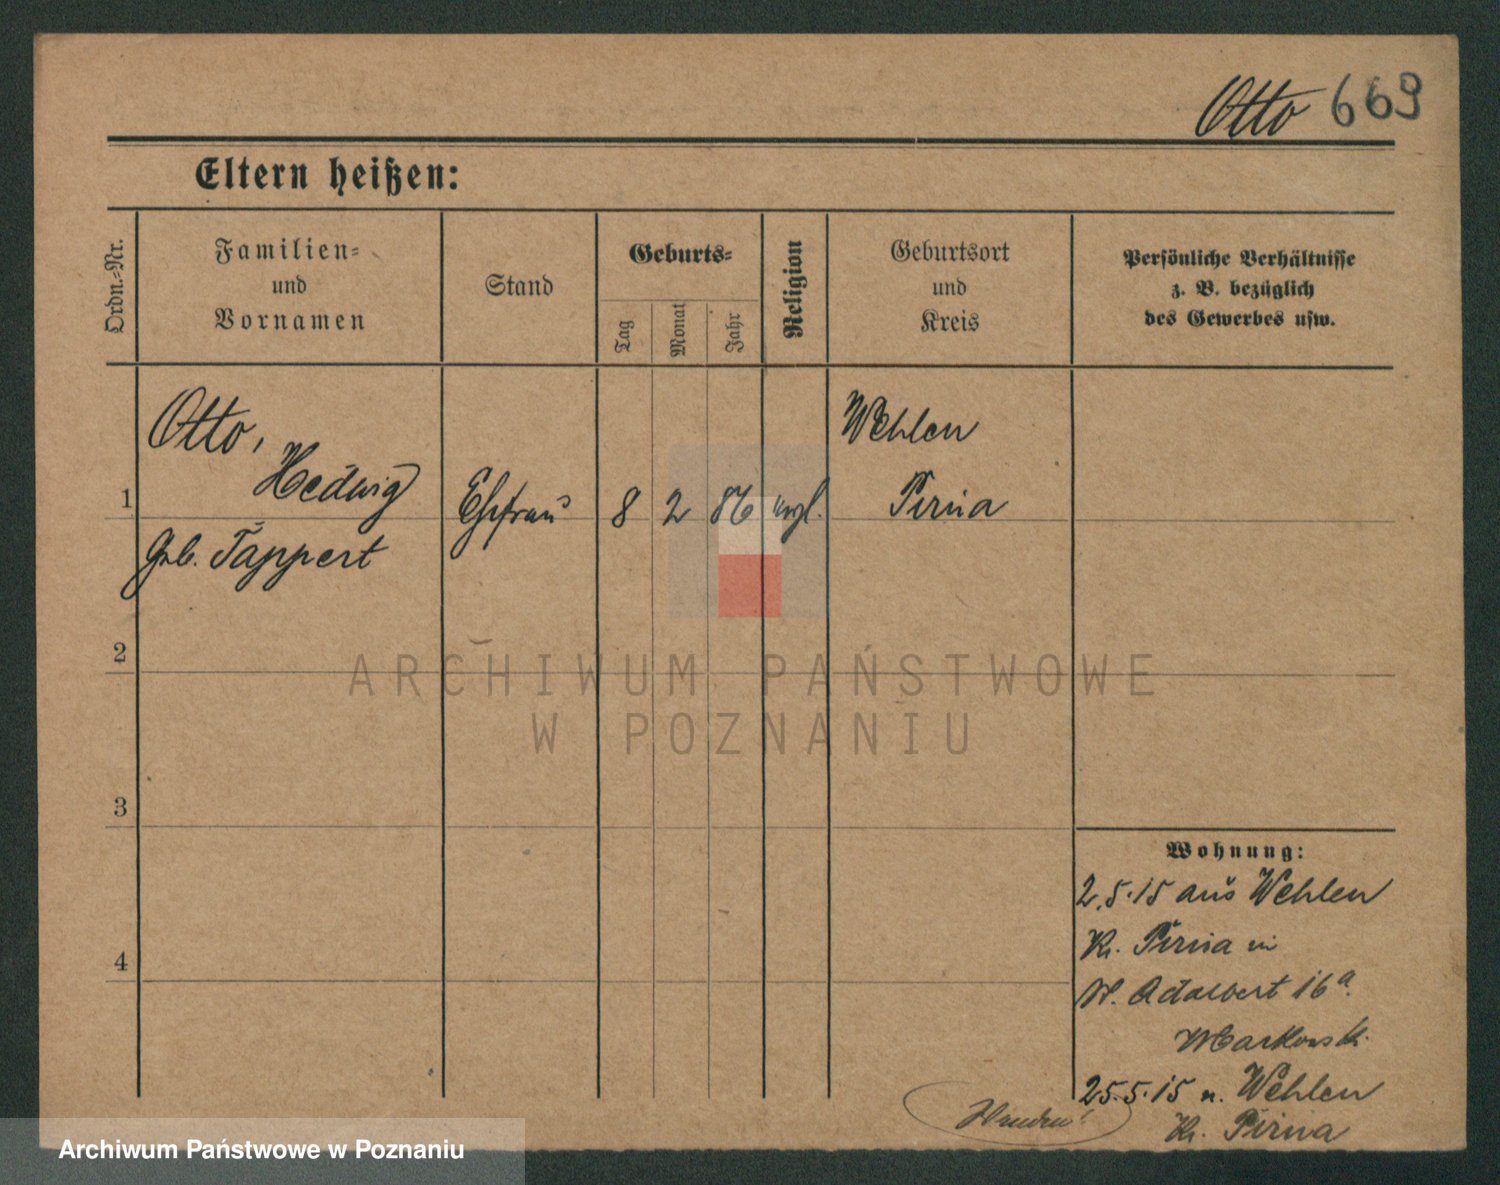 Otto 669
Eltern heißen:
Ordn.-Nr.
Familien-
und
Vornamen
Stand
Geburts-
Tag
Monat
Jahr
Religion
Geburtsort
und
Kreis
Persönliche Verhältnisse
z. B. bezüglich
des Gewerbes usw.
1
Otto,
Hedwig
geb. Tappert
Ehefrau
8 2 86
evgl.
Wehlen
Pirna
2
3
4
Wohnung:
2.5.15 aus Wehlen
Kr. Pirna in
St. Adalbert 16a.
Markowski
25.5.15 n. Wehlen
Kr. Pirna
ARCHIWUM PAŃSTWOWE
W POZNANIU
Archiwum Państwowe w Poznaniu